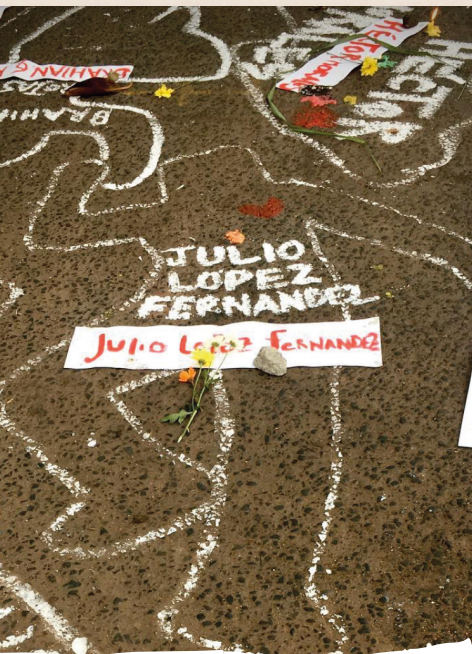 BRAHIAN G
BRAHI
HÉCTOR
HECTOR
JULIO
LOPEZ
FERNANDEZ
JULIO LOPEZ FERNANDEZ